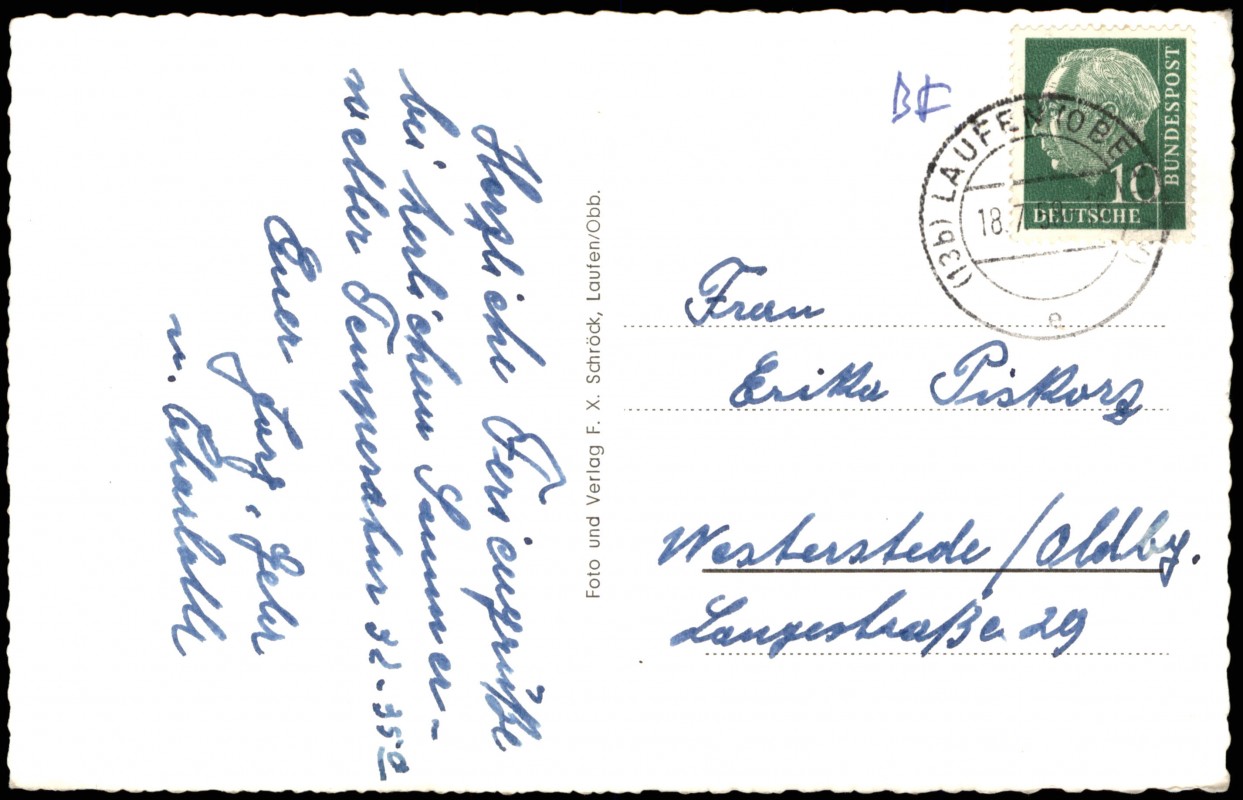 Herzliche Feriengrüße
bei herlichem Sommer-
wetter Temperatur 32-35°
Euer
u. Charlotte
Foto und Verlag F. X. Schröck, Laufen/Obb.
BF
(13b) LAUFEN (OBE
18.7.5
e
10
DEUTSCHE
BUNDESPOST
Frau
Erika Piskorz
Westerstede/Oldbg.
Langestraße 29